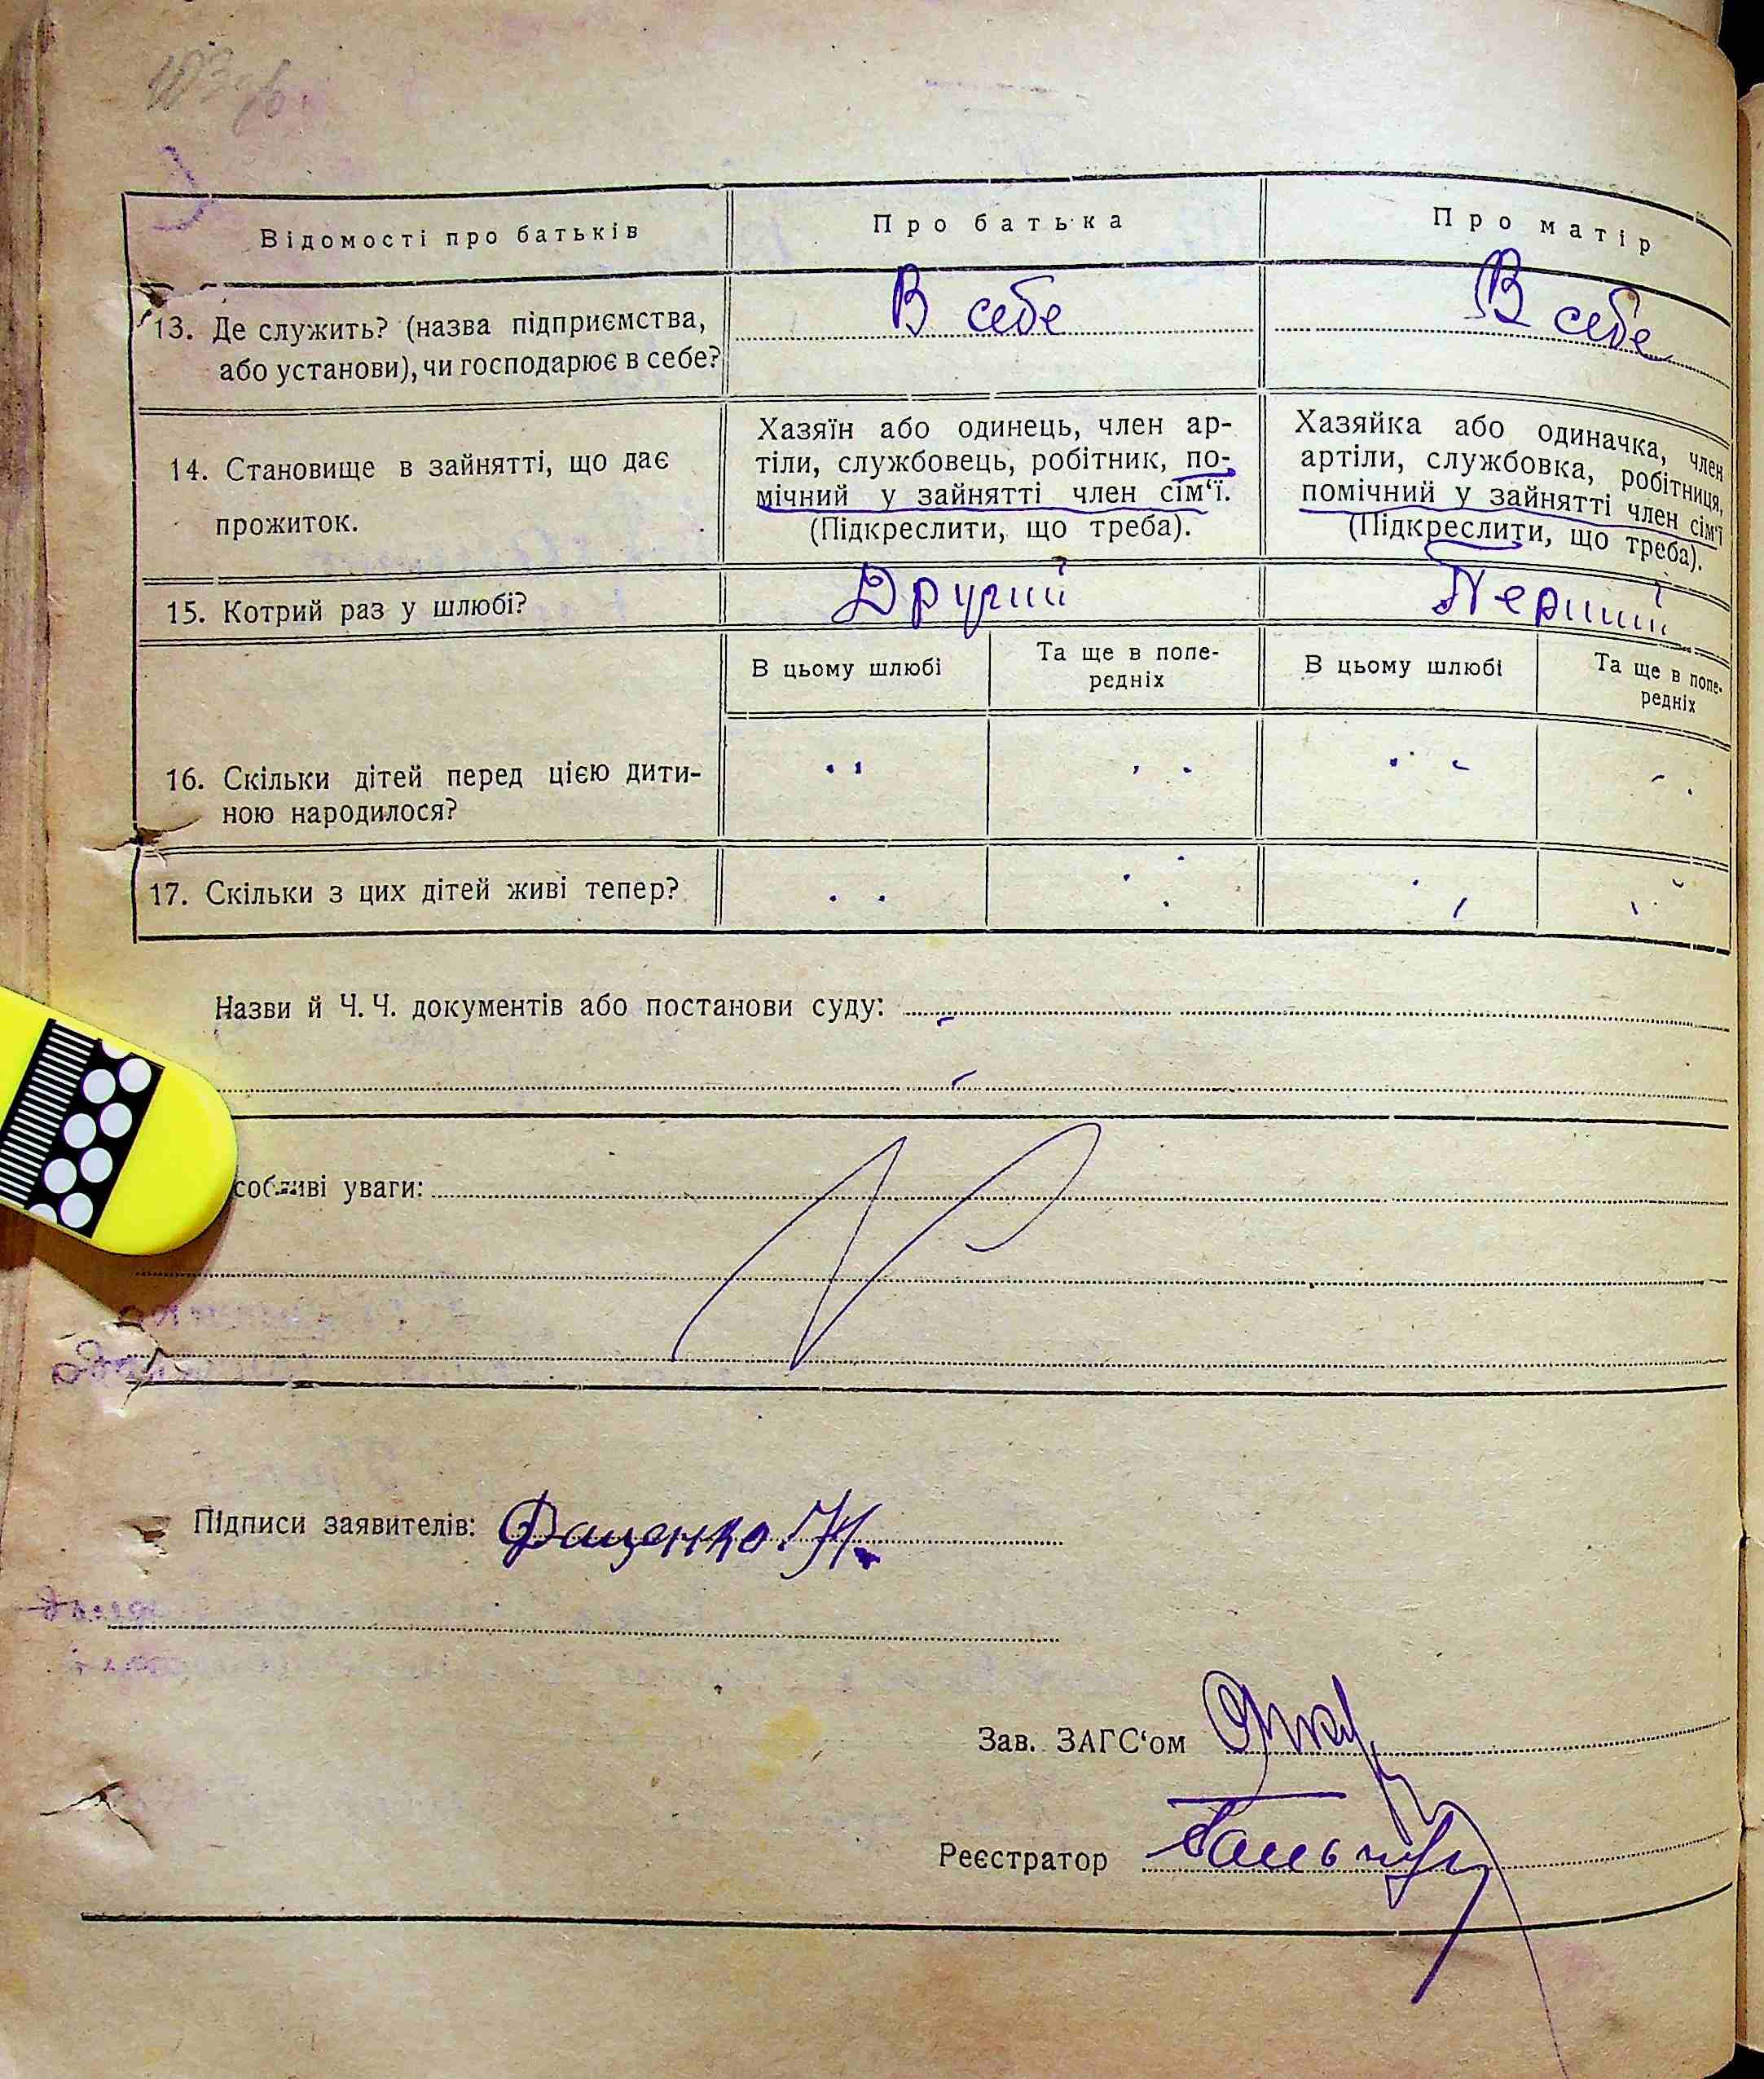 Відомості про батьків Про батька Про матір
13. Де служить? (назва підприємства, В себе В себе
або установи), чи господарює в себе?
14. Становище в зайнятті, що дає
прожиток.
Хазяїн або одинець, член ар-
тіли, службовець, робітник, по-
мічний у зайнятті член сім‘ї.
(Підкреслити, що треба).
Хазяйка або одиначка, член
артіли, службовка, робітниця,
помічний у зайнятті член сім‘ї
(Підкреслити, що треба).
15. Котрий раз у шлюбі? Другий Перший
В цьому шлюбі Та ще в попе-
редніх
В цьому шлюбі Та ще в попе-
редніх
16. Скільки дітей перед цією дити-
ною народилося?
17. Скільки з цих дітей живі тепер?
Назви й Ч. Ч. документів або постанови суду:
собливі уваги:
Підписи заявителів: Фаценко
Зав. ЗАГС‘ом
Реєстратор